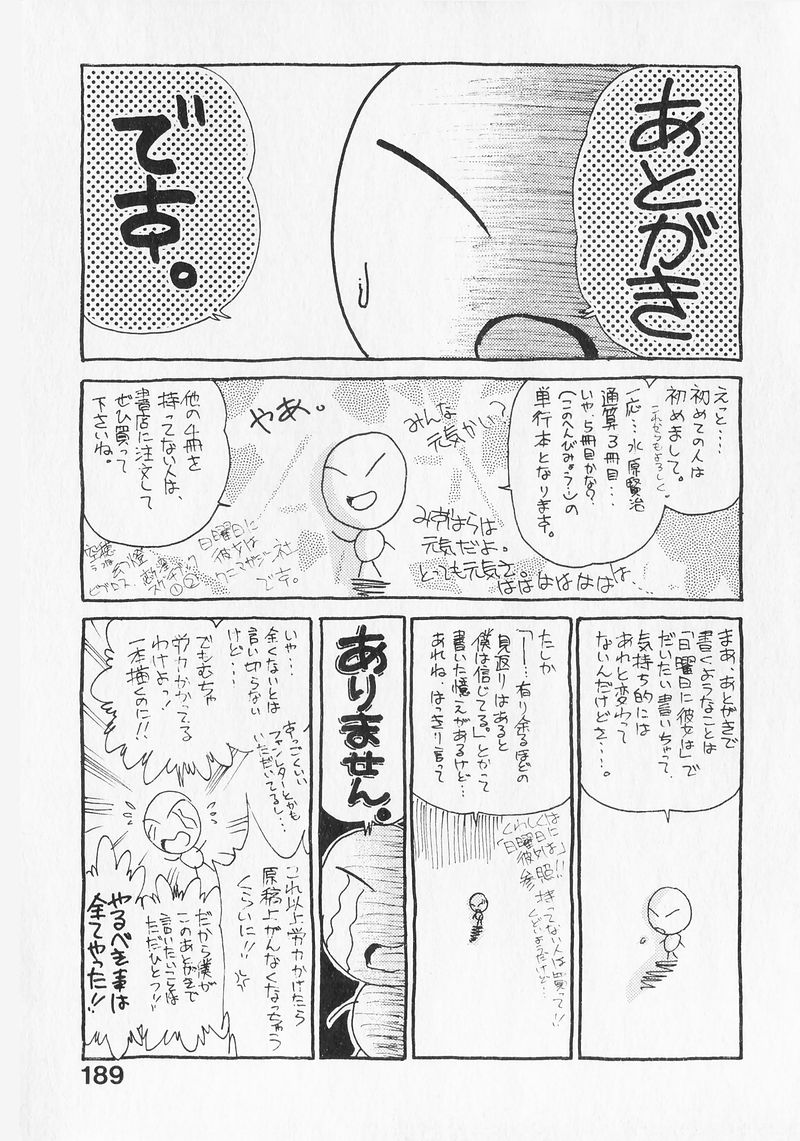 あとがき
です。
えっと‥‥
初めての人は
初めまして。
これからもよろしく。
一応‥水原賢治
通算3冊目‥‥
いや、5冊目かな?
(このへんびみょう?‥)の
単行本となります。
みんな
元気かい?
やあ。
みずはらは
元気だよ。
とっても元気さ。
はははははは‥‥
他の4冊を
持ってない人は、
書店に注文して
ぜひ買って
下さいね。
日曜日に
彼女は
ワニマガジン社
です。
①②
まあ、あとがきで
書くようなことは
「日曜日に彼女は」で
だいたい書いちゃって、
気持ち的には
あれと変わって
ないんだけどさ‥‥。
たしか
「一‥有り余るほどの
見返りはあると
僕は信じてる。」とかって
書いた憶えがあるけど‥‥
あれね、はっきり言って
くわしくは
「日曜日に
彼女は」
参照!!
持ってない人は買って!!
くどいようだけど‥‥
ありません。
いや‥‥
全くないとは
言い切らない
けど‥‥
すっごくいい
ファンレターとかも
いただいてるし‥‥
でもむちゃ
労力かかってる
わけよっ!
一本描くのに!!
これ以上労力かけたら
原稿上がんなくなっちゃう
くらいに!!
だから僕が
このあとがきで
言いたいことは
ただひとつ!!
やるべき事は
全てやった!!
189